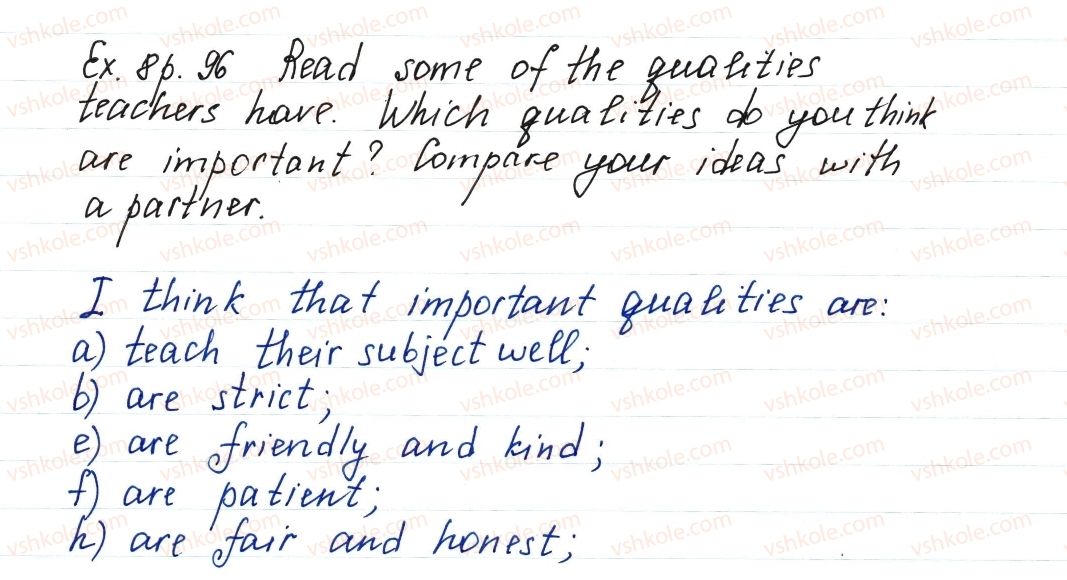 Ex. 8 p. 96 Read some of the qualities
teachers have. Which qualities do you think
are important? Compare your ideas with
a partner.
I think that important qualities are:
a) teach their subject well;
b) are strict;
e) are friendly and kind;
f) are patient;
h) are fair and honest;